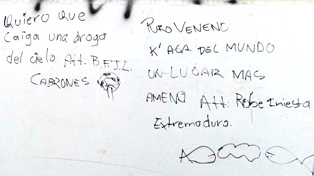 Quiero que
Caiga una droga
del cielo Att. B.F.J.L.
CABRONES
PURO VENENO
K' AGA DEL MUNDO
UN LUGAR MAS
AMENO Att. Robe Iniesta
Extremaduro.